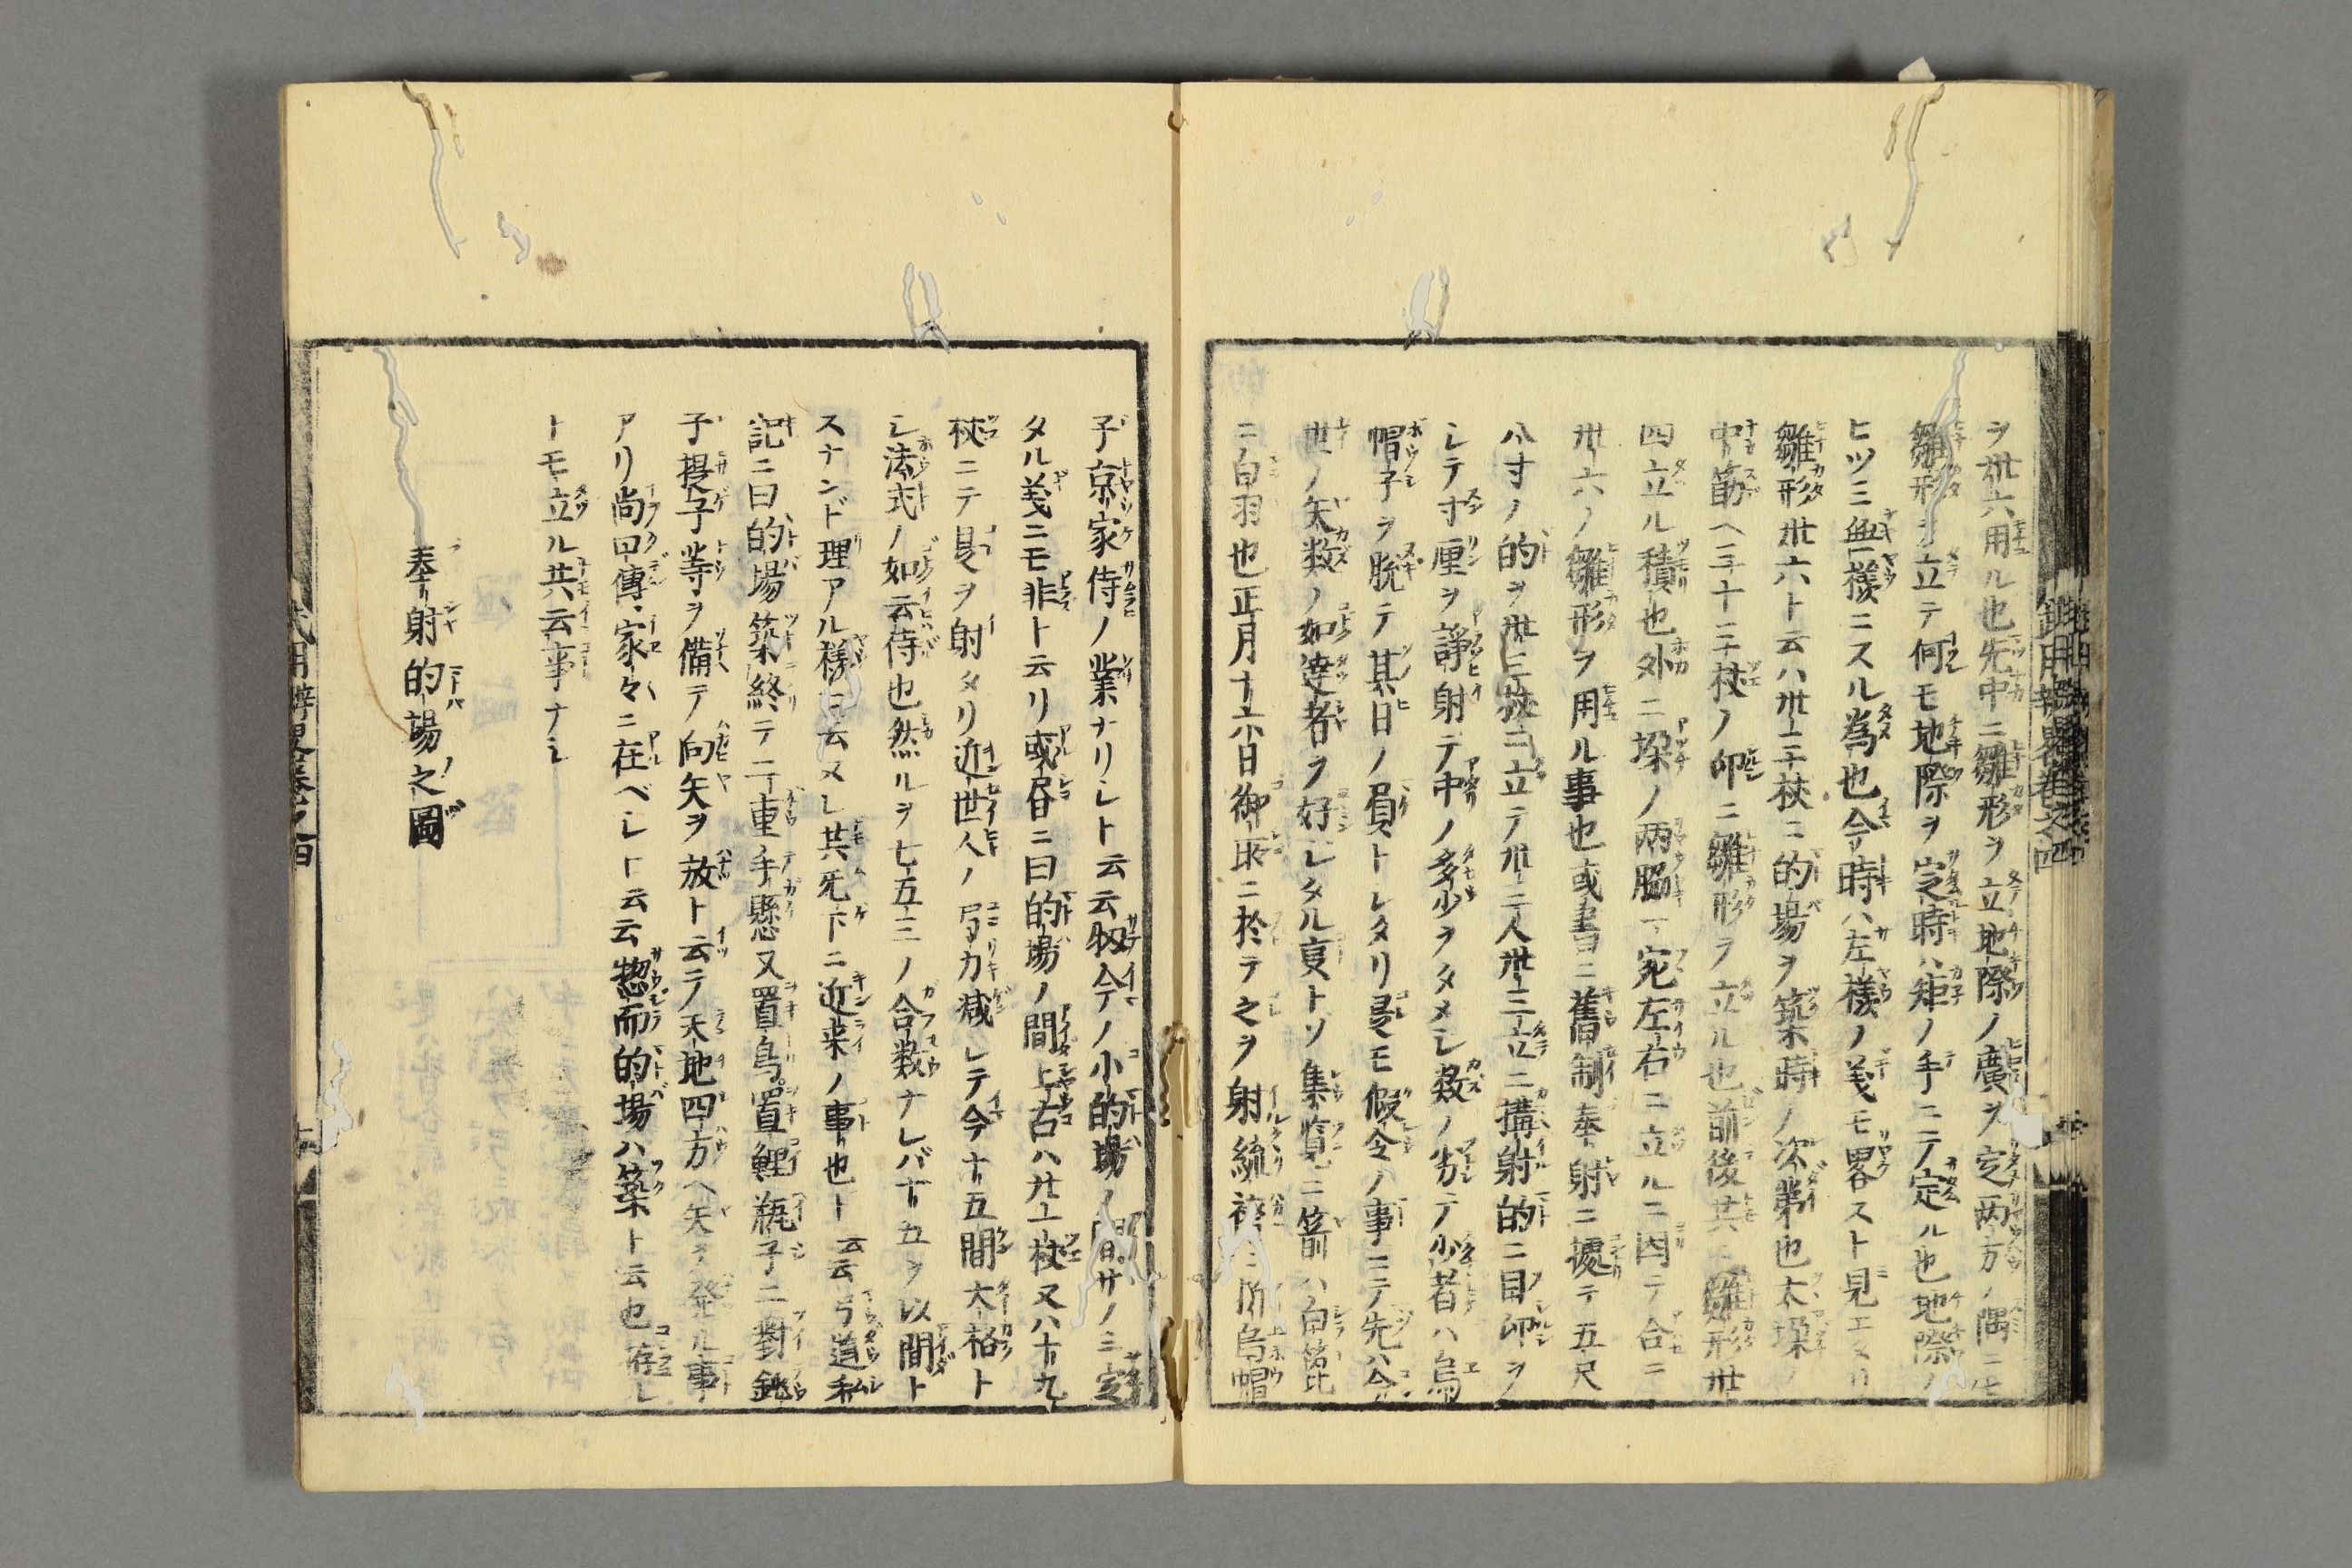 ヲ卅六用ル也先中ニ雛形ヲ立地際ノ廣ヲ定両方ノ隅ニモ
雛形ヲ立テ何モ地際ヲ定時ハ矩ノ手ニテ定ル也地際ノ
ヒツミ無樣ニスル為也今時ハ左樣ノ義モ畧スト見エタリ
雛形卅六ト云ハ卅三杖ニ的場ヲ築時ノ次第也太垜ノ
中筋ヘ三十三杖ノ印ニ雛形ヲ立ル也前後共ニ雛形卅
四立ル積也外ニ垜ノ両脇ニ一宛左右ニ立ルニ因テ合ニ
卅六ノ雛形ヲ用ル事也或書ニ舊制奉射ニ據テ五尺
八寸ノ的ヲ卅三杖ニ立テ卅三人卅三立ニ搆射的ニ目印ヲ
シテ寸厘ヲ諍射テ中ノ多少ヲタメシ数ノ劣テ少者ハ烏
帽子ヲ脱テ其日ノ負トシタリ是モ假令ノ事ニテ先ハ今
世ノ矢数ノ如達者ヲ好シタル叓トソ集覧ニ箭ハ白篦
ニ白羽也正月十六日御所ニ於テ之ヲ射
子京家侍ノ業ナリシト云云扨今ノ小的場ノ間廿ノミ定
タル義ニモ非ト云リ或昏ニ曰的場ノ間上古ハ廿一杖又八十九
杖ニテ是ヲ射タリ近世人ノ弓力減シテ今十五間大格ト
シ法式ノ如云侍也然ルヲ七五三ノ合数ナレバ十五ヲ以間ト
スナンド理アル樣ニ云ヌレ共死下ニ近来ノ事也ト云云弓道秘
記ニ曰的場築終テ二重手懸又置鳥置鯉瓶子二對銚
子提子等ヲ備テ向矢ヲ放ト云テ天地四方ヘ矢ヲ發ル事
アリ尚口傳家々ニ在ベシト云云惣而的場ハ築ト云也
トモ立ル共云事ナシ
奉射的場之圖